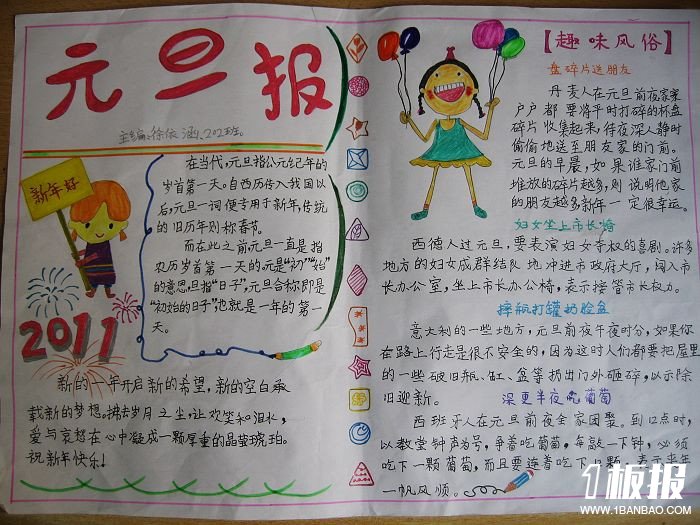 元旦报
主编:徐依涵 202班.
新年好
2011
在当代,元旦指公元纪年的
岁首第一天。自西历传入我国以
后,元旦一词便专用于新年,传统
的旧历年则称春节。
而在此之前元旦一直是指
农历岁首第一天的。元是“初”“始”
的意思,旦指“日子”,元旦合称即是
“初始的日子”也就是一年的第一
天。
新的一年开启新的希望,新的空白承
载新的梦想。拂去岁月之尘,让欢笑和泪水,
爱与哀愁在心中凝成一颗厚重的晶莹琥珀。
祝新年快乐!
【趣味风俗】
盘碎片送朋友
丹麦人在元旦前夜家家
户户都要将平时打碎的杯盘
碎片收集起来,待夜深人静时
偷偷地送至朋友家的门前。
元旦的早晨,如果谁家门前
堆放的碎片越多,则说明他家
的朋友越多新年一定很幸运。
妇女坐上市长椅
西德人过元旦,要表演妇女夺权的喜剧。许多
地方的妇女成群结队地冲进市政府大厅,闯入市
长办公室,坐上市长办公椅,表示接管市长权力。
摔瓶打罐扔脸盆
意大利的一些地方,元旦前夜午夜时分,如果你
在路上行走是很不安全的,因为这时人们都要把屋里
的一些破旧瓶、缸、盆等扔出门外砸碎,以示除
旧迎新。
深更半夜吃葡萄
西班牙人在元旦前夜全家团聚。到12点时,
以教堂钟声为号,争着吃葡萄,每敲一下钟,必须
吃下一颗葡萄,而且要连着吃下12颗,表示来年
一帆风顺。
1板报
WWW.1BANBAO.COM